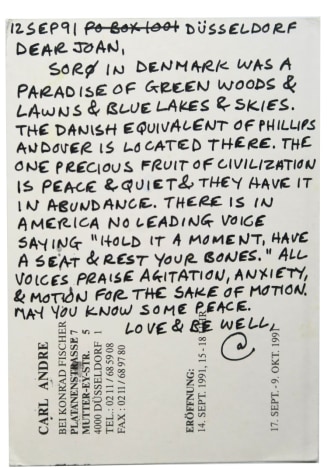 12SEP91 PO BOX 1001 DÜSSELDORF
DEAR JOAN,
SORØ IN DENMARK WAS A
PARADISE OF GREEN WOODS &
LAWNS & BLUE LAKES & SKIES.
THE DANISH EQUIVALENT OF PHILLIPS
ANDOVER IS LOCATED THERE. THE
ONE PRECIOUS FRUIT OF CIVILIZATION
IS PEACE & QUIET & THEY HAVE IT
IN ABUNDANCE. THERE IS IN
AMERICA NO LEADING VOICE
SAYING "HOLD IT A MOMENT, HAVE
A SEAT & REST YOUR BONES." ALL
VOICES PRAISE AGITATION, ANXIETY,
& MOTION FOR THE SAKE OF MOTION.
MAY YOU KNOW SOME PEACE.
LOVE & BE WELL,
@
CARL ANDRE
BEI KONRAD FISCHER
PLATANENSTRASSE 7
MUTTER-EY-STR. 5
4000 DÜSSELDORF 1
TEL.: 02 11/68 59 08
FAX: 02 11/68 97 80
ERÖFFNUNG:
14. SEPT. 1991, 15 - 18 UHR
17. SEPT. - 9. OKT. 1991